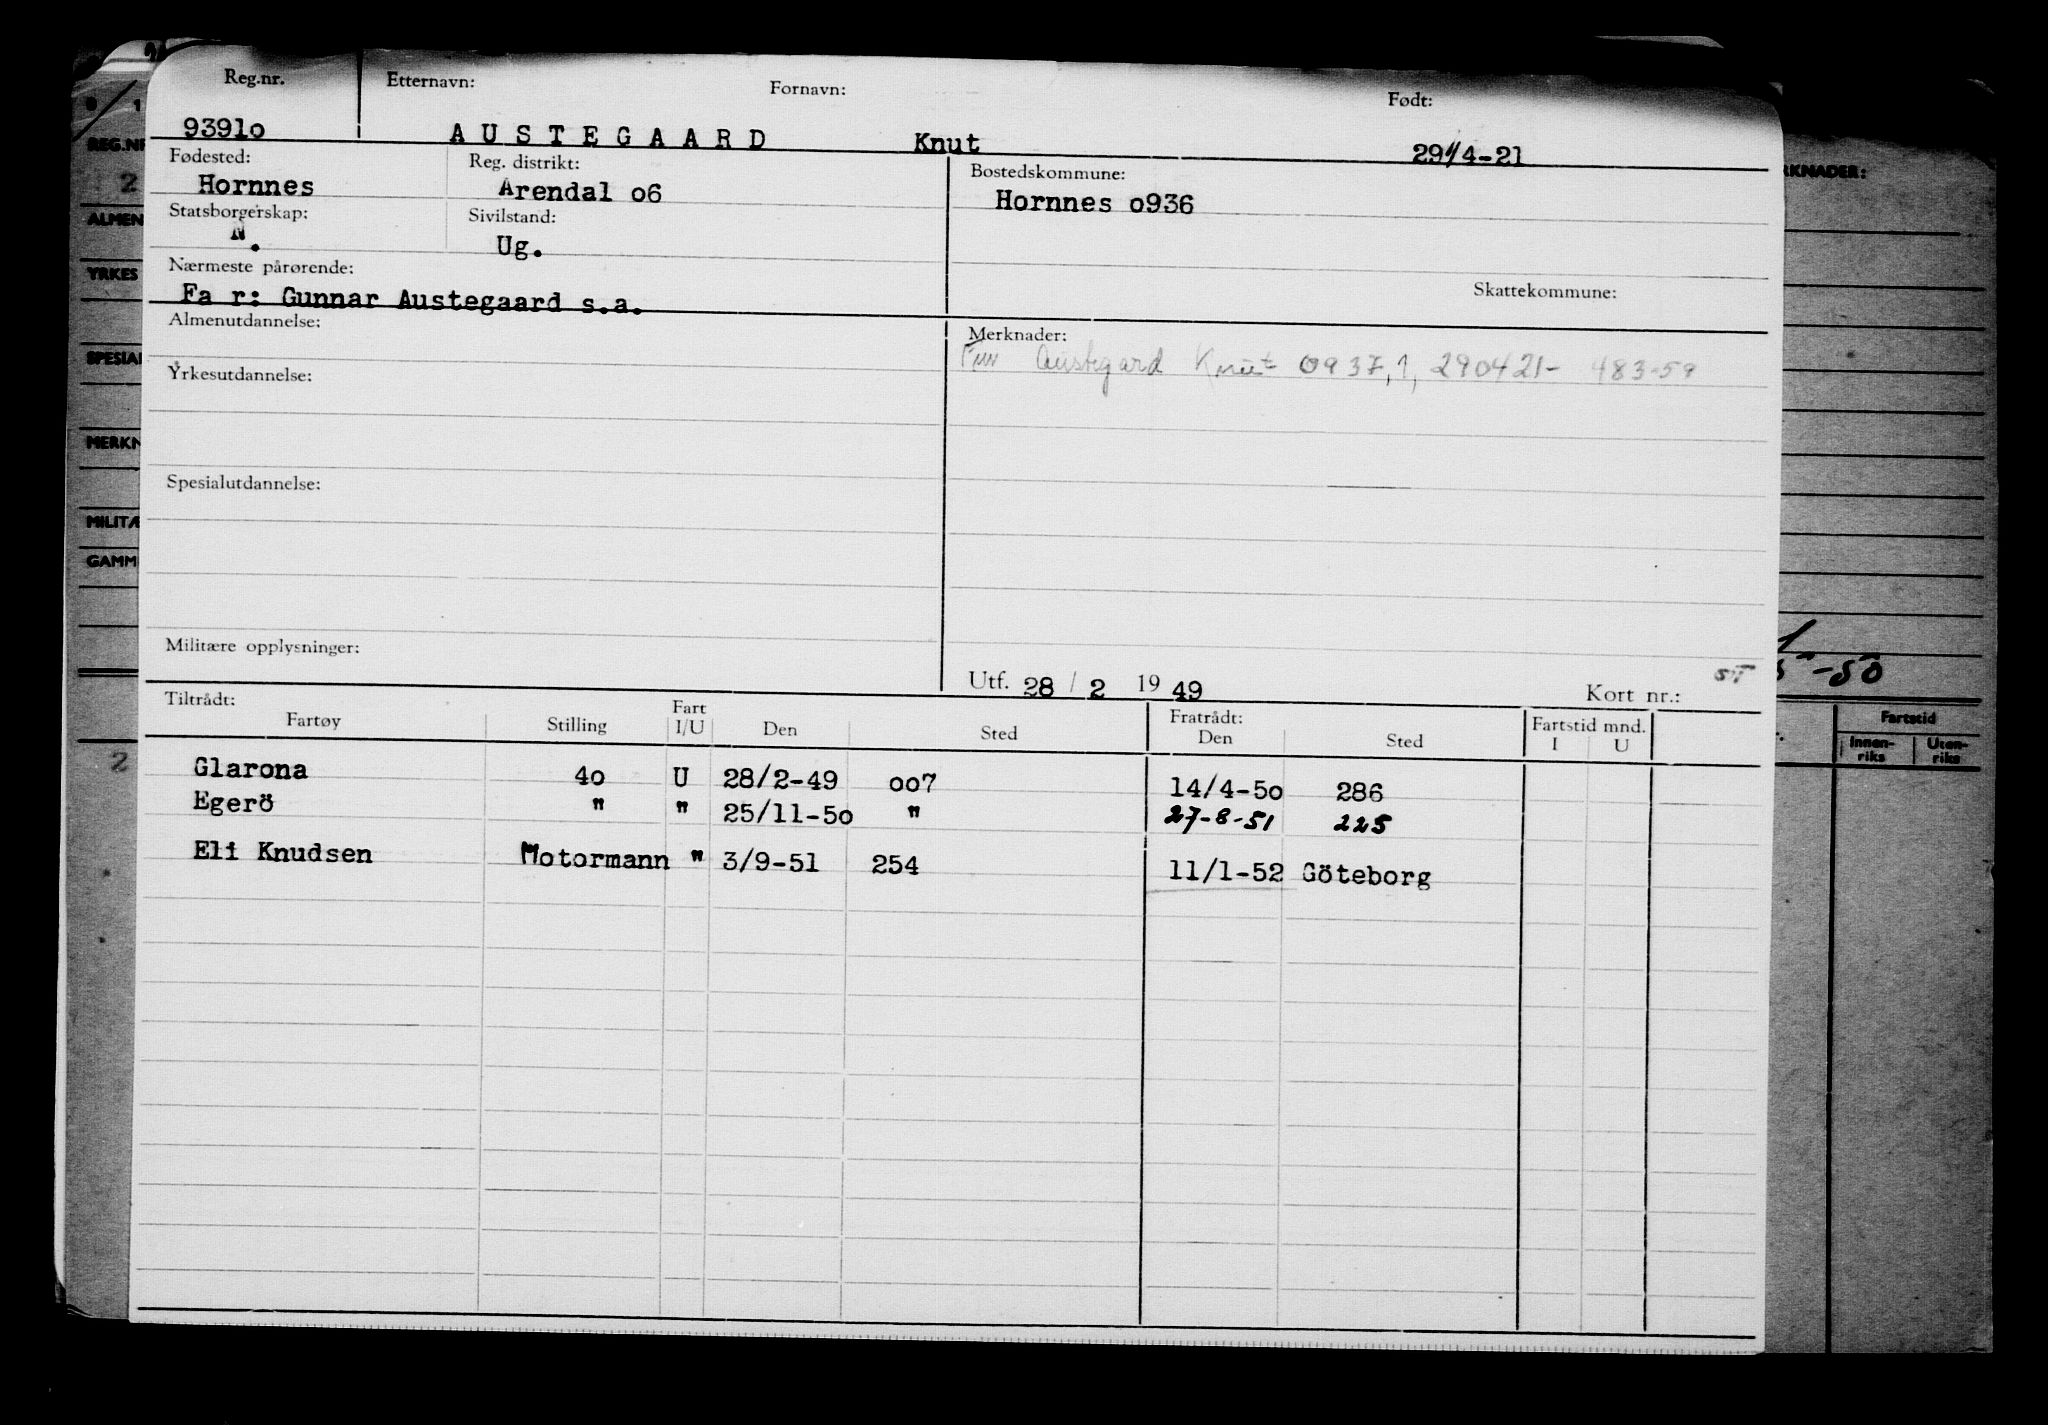 Reg.nr. Etternavn: Fornavn: Født:
9391o A U S T E G A A R D Knut 29/4-21
Fødested: Reg. distrikt: Bostedskommune:
Hornnes Arendal o6 Hornnes o936
Statsborgerskap: Sivilstand:
N. Ug.
Nærmeste pårørende: Skattekommune:
Fa r: Gunnar Austegaard s.a.
Almenutdannelse: Merknader:
Austegard Knut 0937,1, 290421- 483-59
Yrkesutdannelse:
Spesialutdannelse:
Militære opplysninger:
Utf. 28 / 2 19 49 Kort nr.:
Tiltrådt: Fratrådt: Fartstid mnd.
Fartøy Stilling Fart I/U Den Sted Den Sted I U
Glarona 4o U 28/2-49 oo7 14/4-5o 286
Egerö " " 25/11-5o " 27-8-51 225
Eli Knudsen Motormann " 3/9-51 254 11/1-52 Göteborg
REG.NR
2
ALMEN
YRKES
SPESIAL
MERKN
MILITÆ
GAMM
2
RKNADER:
5-50
Fartstid
Innen-riks Uten-riks